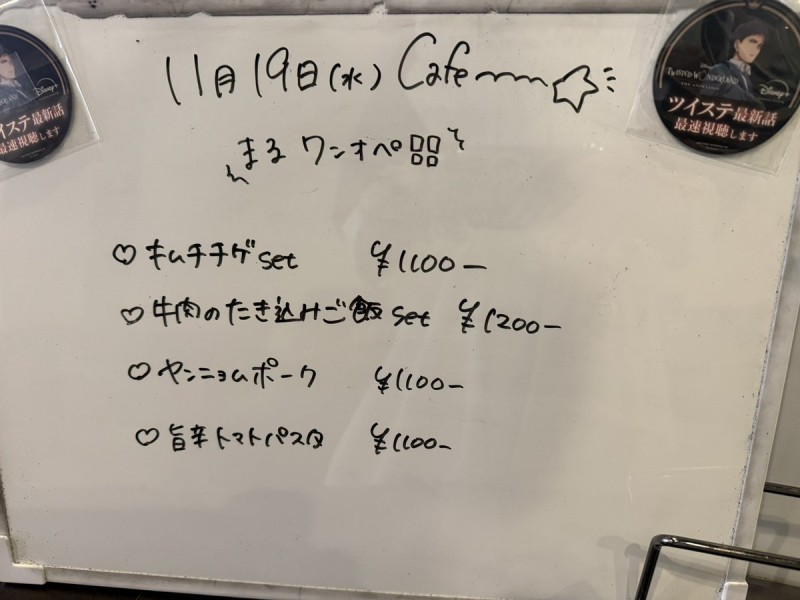 11月19日(水) Cafe
まる ワンオペ
♡ キムチチゲset ¥1100-
♡ 牛肉のたき込みご飯 set ¥1200-
♡ ヤンニョムポーク ¥1100-
♡ 旨辛トマトパスタ ¥1100-
Disney+
ツイステ最新話
最速視聴します
TWISTED WONDERLAND
Disney+
ツイステ最新話
最速視聴します